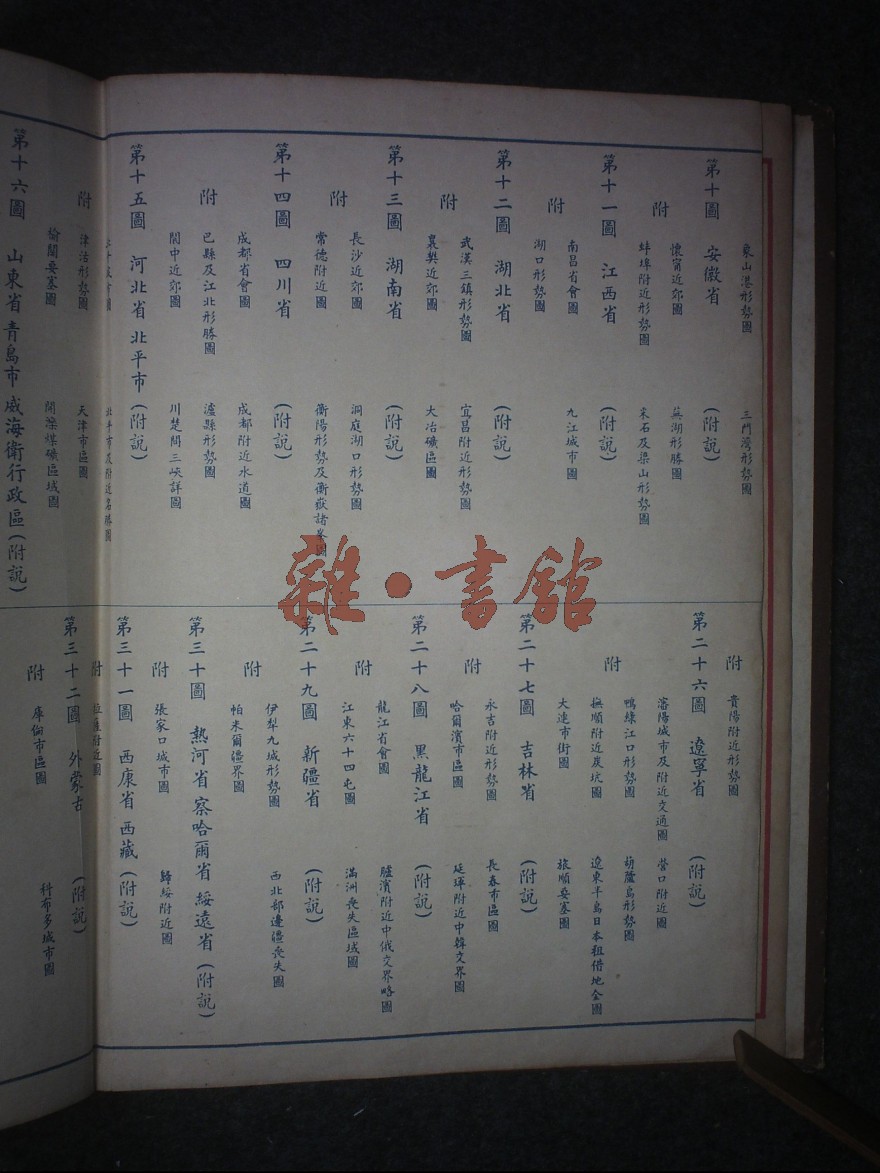 東山港形勢圖
三門灣形勢圖
第十圖 安徽省 (附說)
懷甯近郊圖
蕪湖形勝圖
附
蚌埠附近形勢圖
采石及梁山形勢圖
第十一圖 江西省 (附說)
南昌省會圖
九江城市圖
附
湖口形勢圖
第十二圖 湖北省 (附說)
武漢三鎮形勢圖
宜昌附近形勢圖
附
襄樊近郊圖
大冶礦區圖
第十三圖 湖南省 (附說)
長沙近郊圖
洞庭湖口形勢圖
附
常德附近圖
衡陽形勢及衡嶽諸峯圖
第十四圖 四川省 (附說)
成都省會圖
成都附近水道圖
附
巴縣及江北形勝圖
瀘縣形勢圖
閬中近郊圖
川楚間三峽詳圖
第十五圖 河北省 北平市 (附說)
北平市及附近名勝圖
附
津沽形勢圖
天津市區圖
榆關要塞圖
開灤煤礦區域圖
第十六圖 山東省 青島市 威海衛行政區 (附說)
附
貴陽附近形勢圖
第二十六圖 遼寧省 (附說)
瀋陽城市及附近交通圖
營口附近圖
鴨綠江口形勢圖
葫蘆島形勢圖
附
撫順附近炭坑圖
遼東半島日本租借地全圖
大連市街圖
旅順要塞圖
第二十七圖 吉林省 (附說)
永吉附近形勢圖
長春市區圖
附
哈爾濱市區圖
延琿附近中韓交界圖
第二十八圖 黑龍江省 (附說)
龍江省會圖
臚濱附近中俄交界略圖
附
江東六十四屯圖
滿洲喪失區域圖
第二十九圖 新疆省 (附說)
伊犁九城形勢圖
西北部邊疆喪失圖
附
帕米爾疆界圖
第三十圖 熱河省 察哈爾省 綏遠省 (附說)
附
張家口城市圖
歸綏附近圖
第三十一圖 西康省 西藏 (附說)
附
拉薩附近圖
第三十二圖 外蒙古 (附說)
附
庫倫市區圖
科布多城市圖
雜·書館